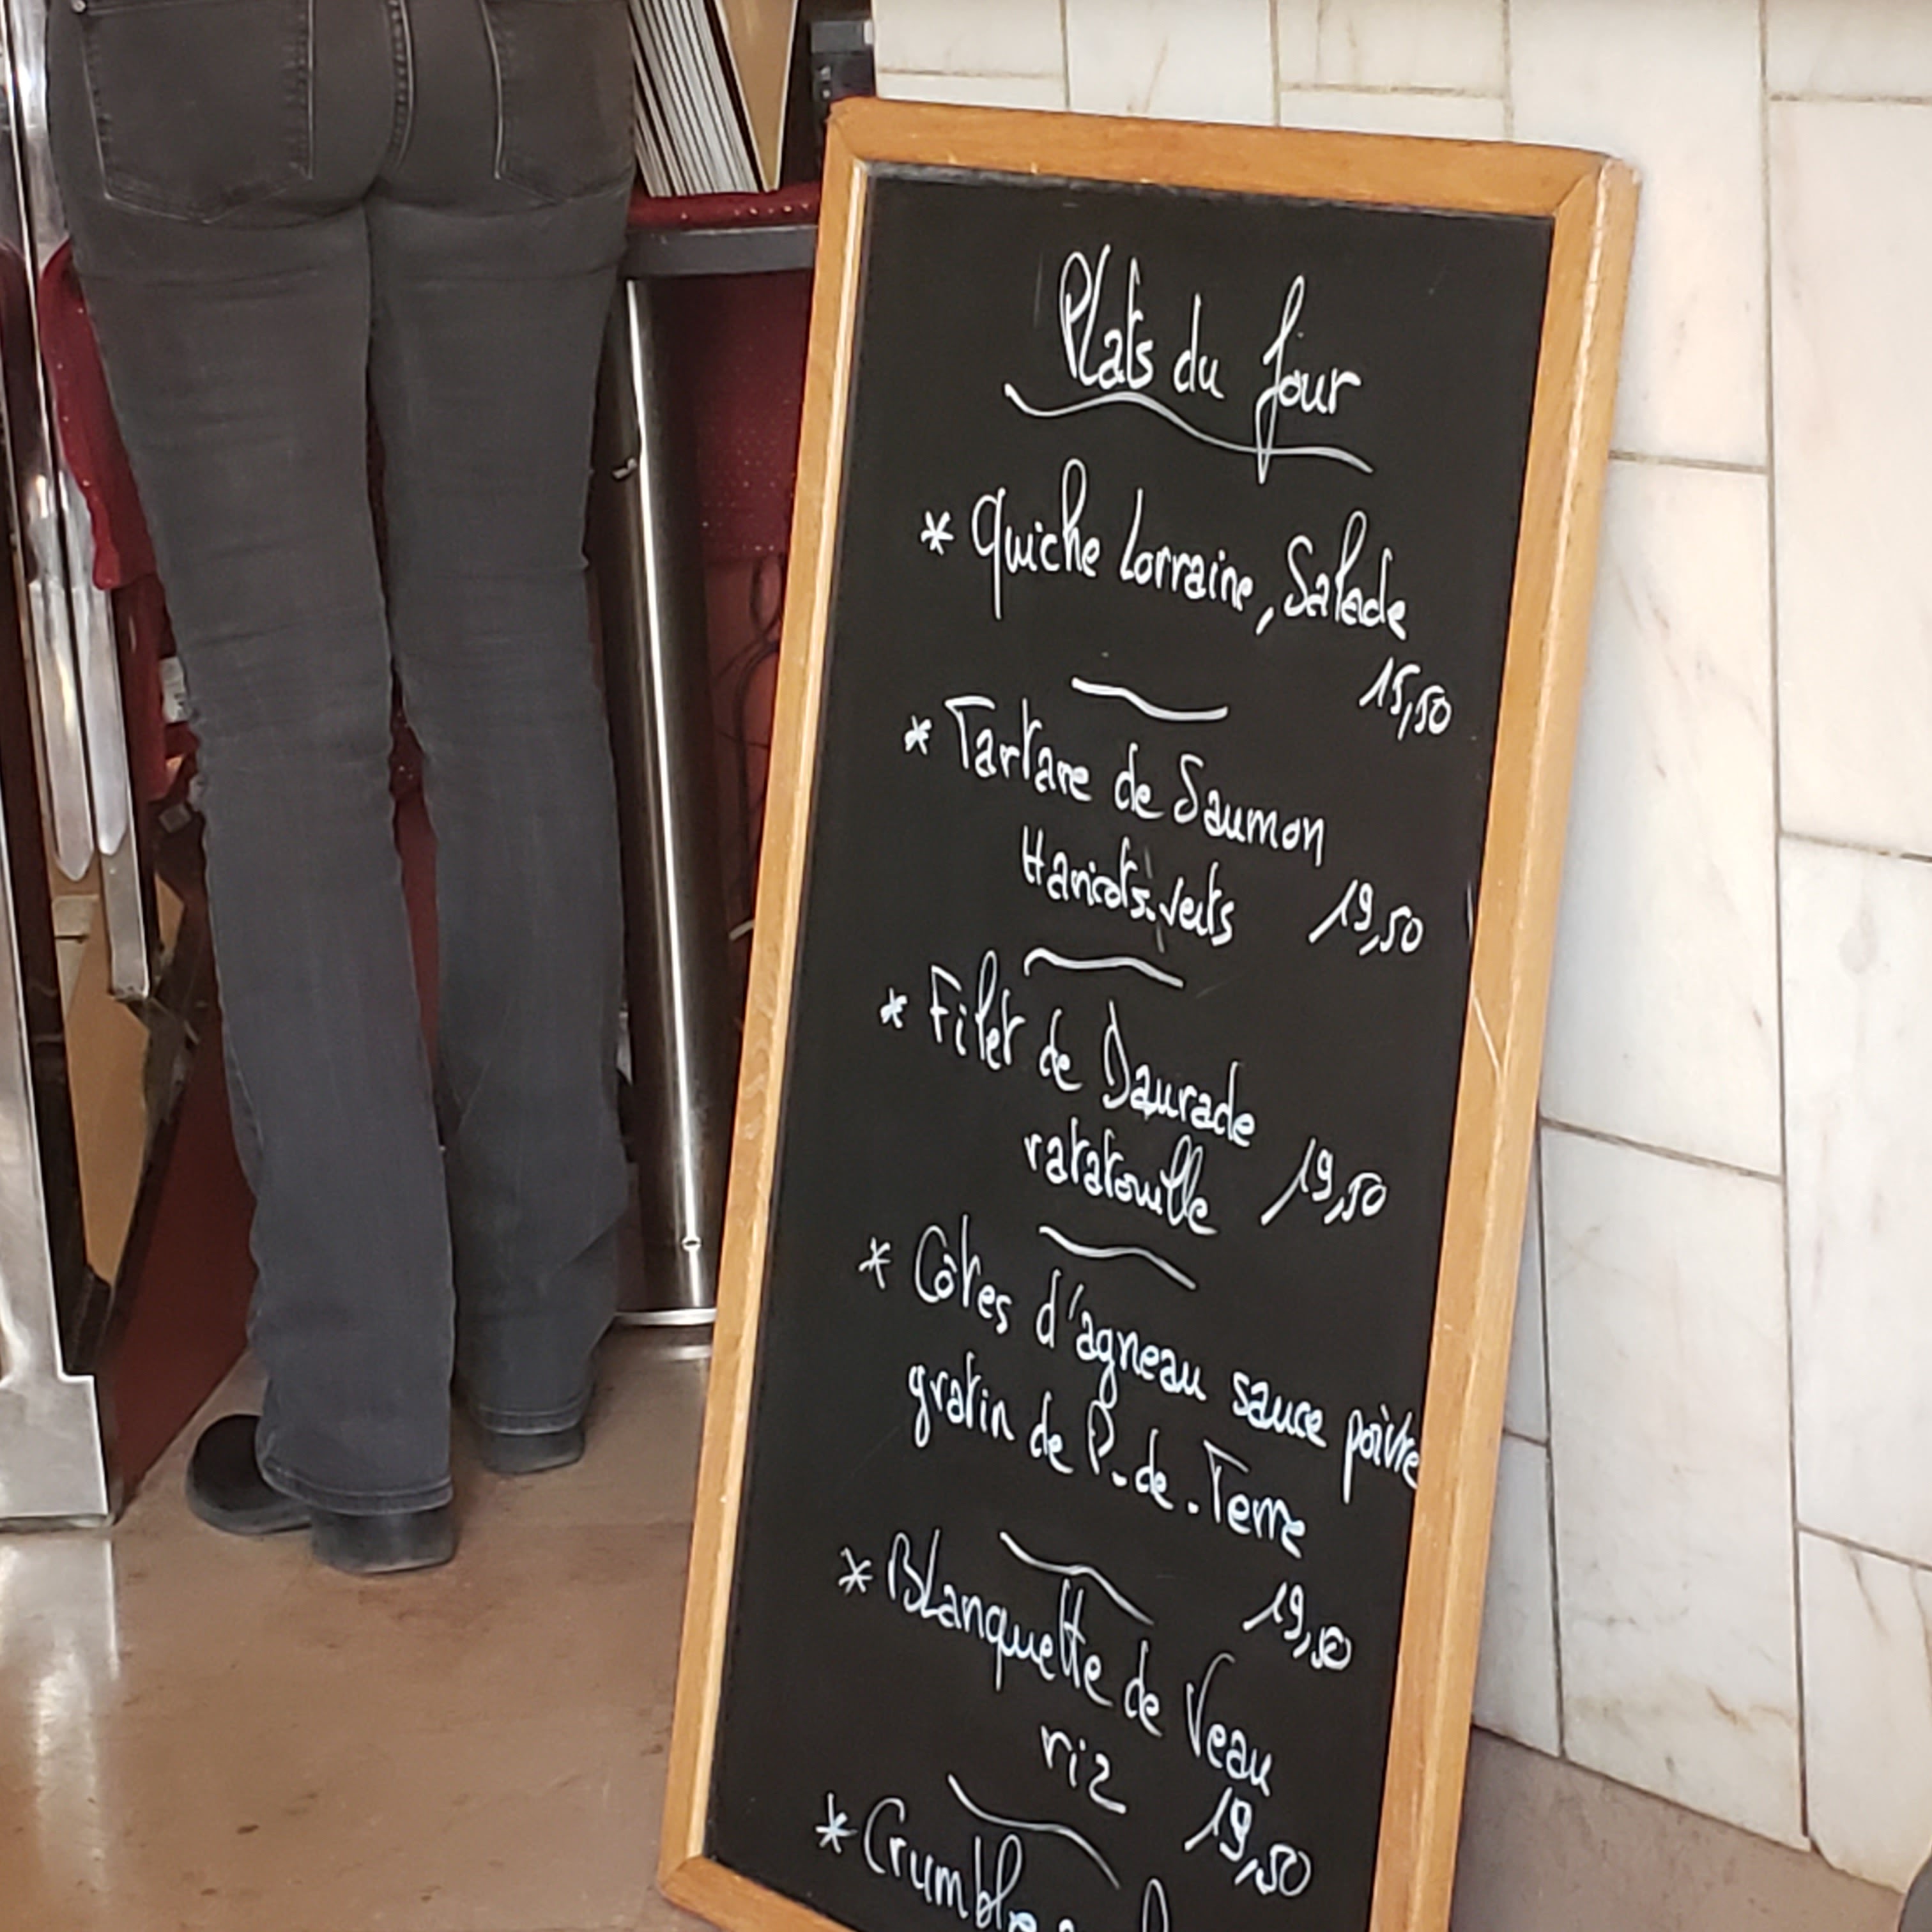 Plats du Jour
* Quiche Lorraine, Salade
15,50
* Tartare de Saumon
Haricots-verts 19,50
* Filet de Daurade
ratatouille 19,50
* Côtes d'agneau sauce poivre
gratin de P.-de-Terre
19,50
* Blanquette de Veau
riz
19,50
* Crumble